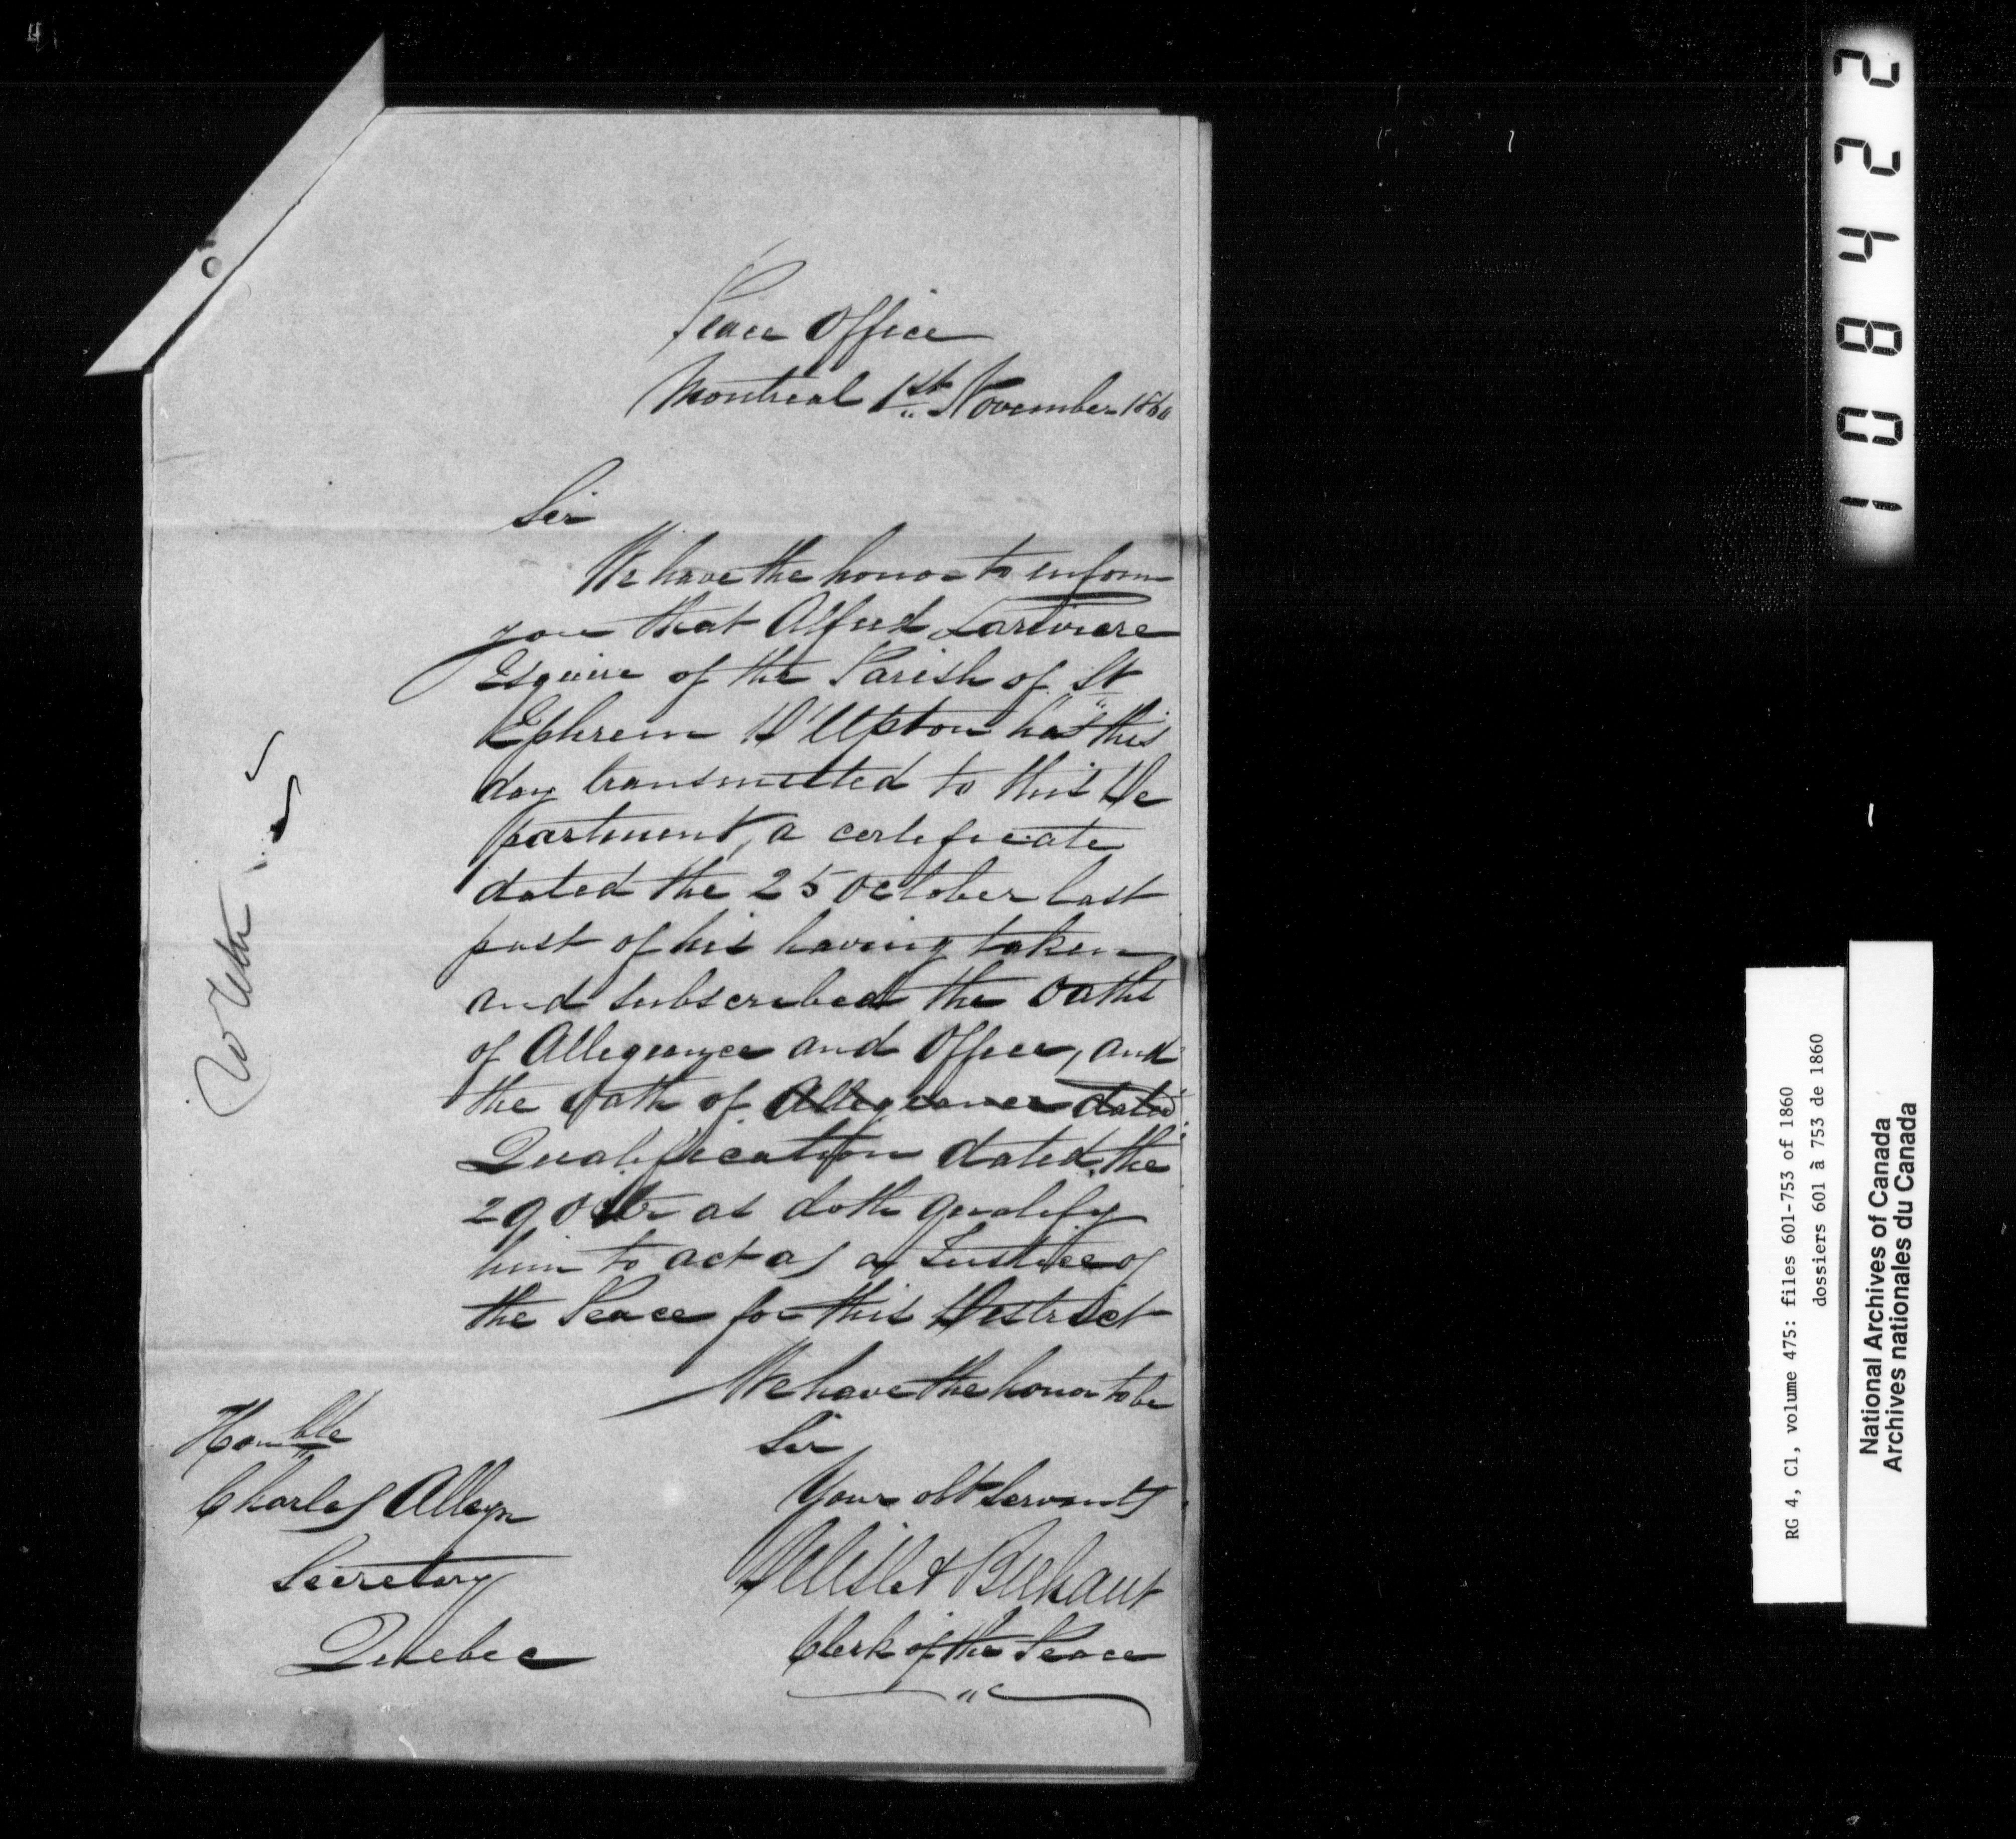 Peace Office
Montreal 1st November 1860
Sir
We have the honor to inform
you that Alfred Lariviere
Esquire of the Parish of St
Ephrem D'Upton has this
day transmitted to this De
partment, a certificate
dated the 25 October last
past of his having taken
and subscribed the Oaths
of Allegiance and Office, and
the Oath of Allegiance dated
Qualification dated the
29 Octr as doth qualify
him to act as a Justice of
the Peace for this District
We have the honor to be
Sir
Your obt Servants
Delisle & Brehaut
Clerk of the Peace
Honble
Charles Alleyn
Secretary
Quebec
108422
RG 4, C1, volume 475: files 601-753 of 1860
dossiers 601 à 753 de 1860
National Archives of Canada
Archives nationales du Canada